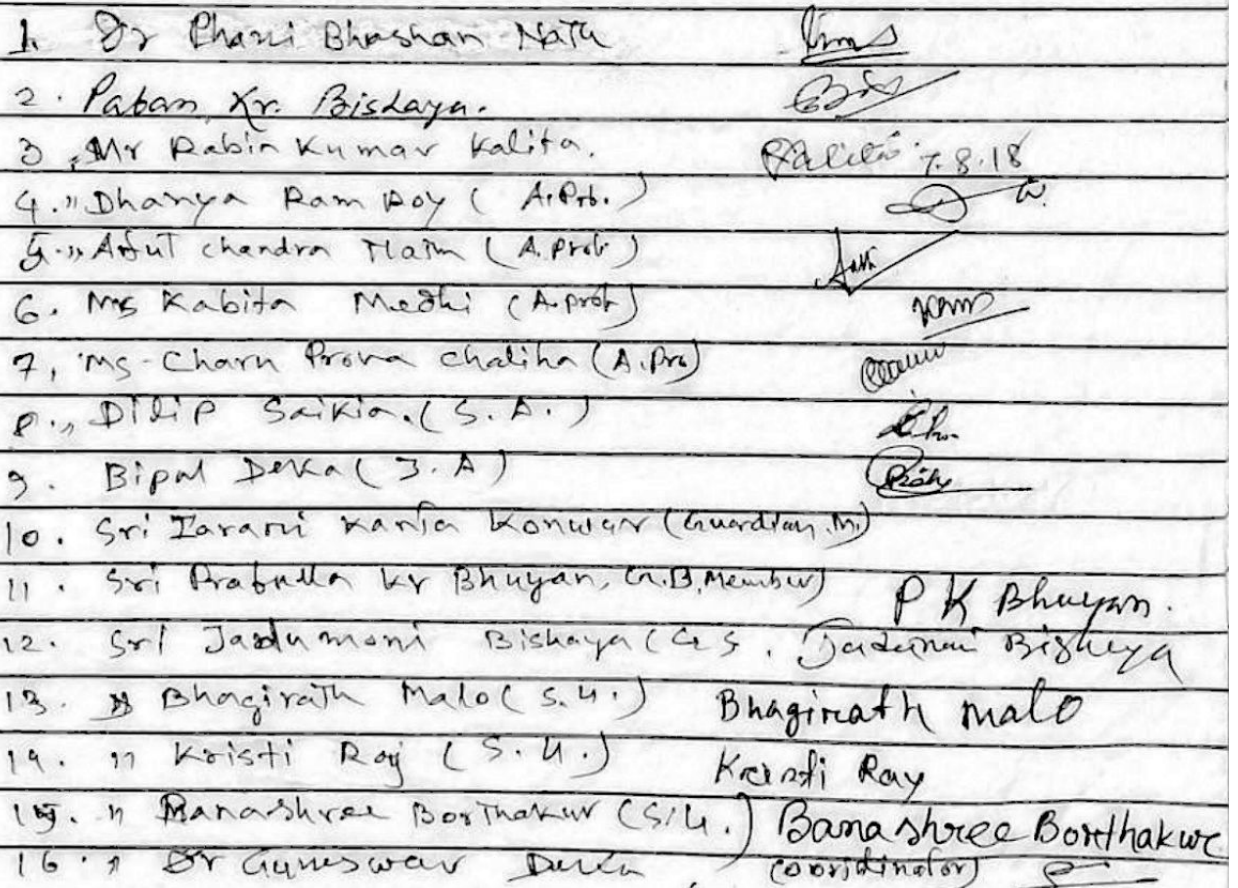 1. Dr Phani Bhashan Nath
2. Paban Kr. Bishaya.
3. Mr Rabin Kumar Kalita. Kalita 7.8.18
4. " Dhanya Ram Roy ( A.Prob.)
5. " Atul chandra Nath (A.prob)
6. Ms Kabita Medhi (A.prob)
7, Ms-Charu Prova chaliha (A.Pro)
8. " Dilip Saikia. (S.A.)
9. Bipul Deka (J.A)
10. Sri Tarani Kanta Konwar (Guardian.M.)
11. Sri Prafulla Kr Bhuyan, (G.B.Member) P K Bhuyan.
12. Sri Jadumoni Bishaya (G.S. Jadumoni Bishaya
13. Bhagirath Malo (S.U.) Bhagirath malo
14. " Kristi Ray (S.U.) Kristi Ray
15. " Banashree Borthakur (S.U.) Banashree Borthakur
16. " Dr Guneswar Deka (Coordinator)